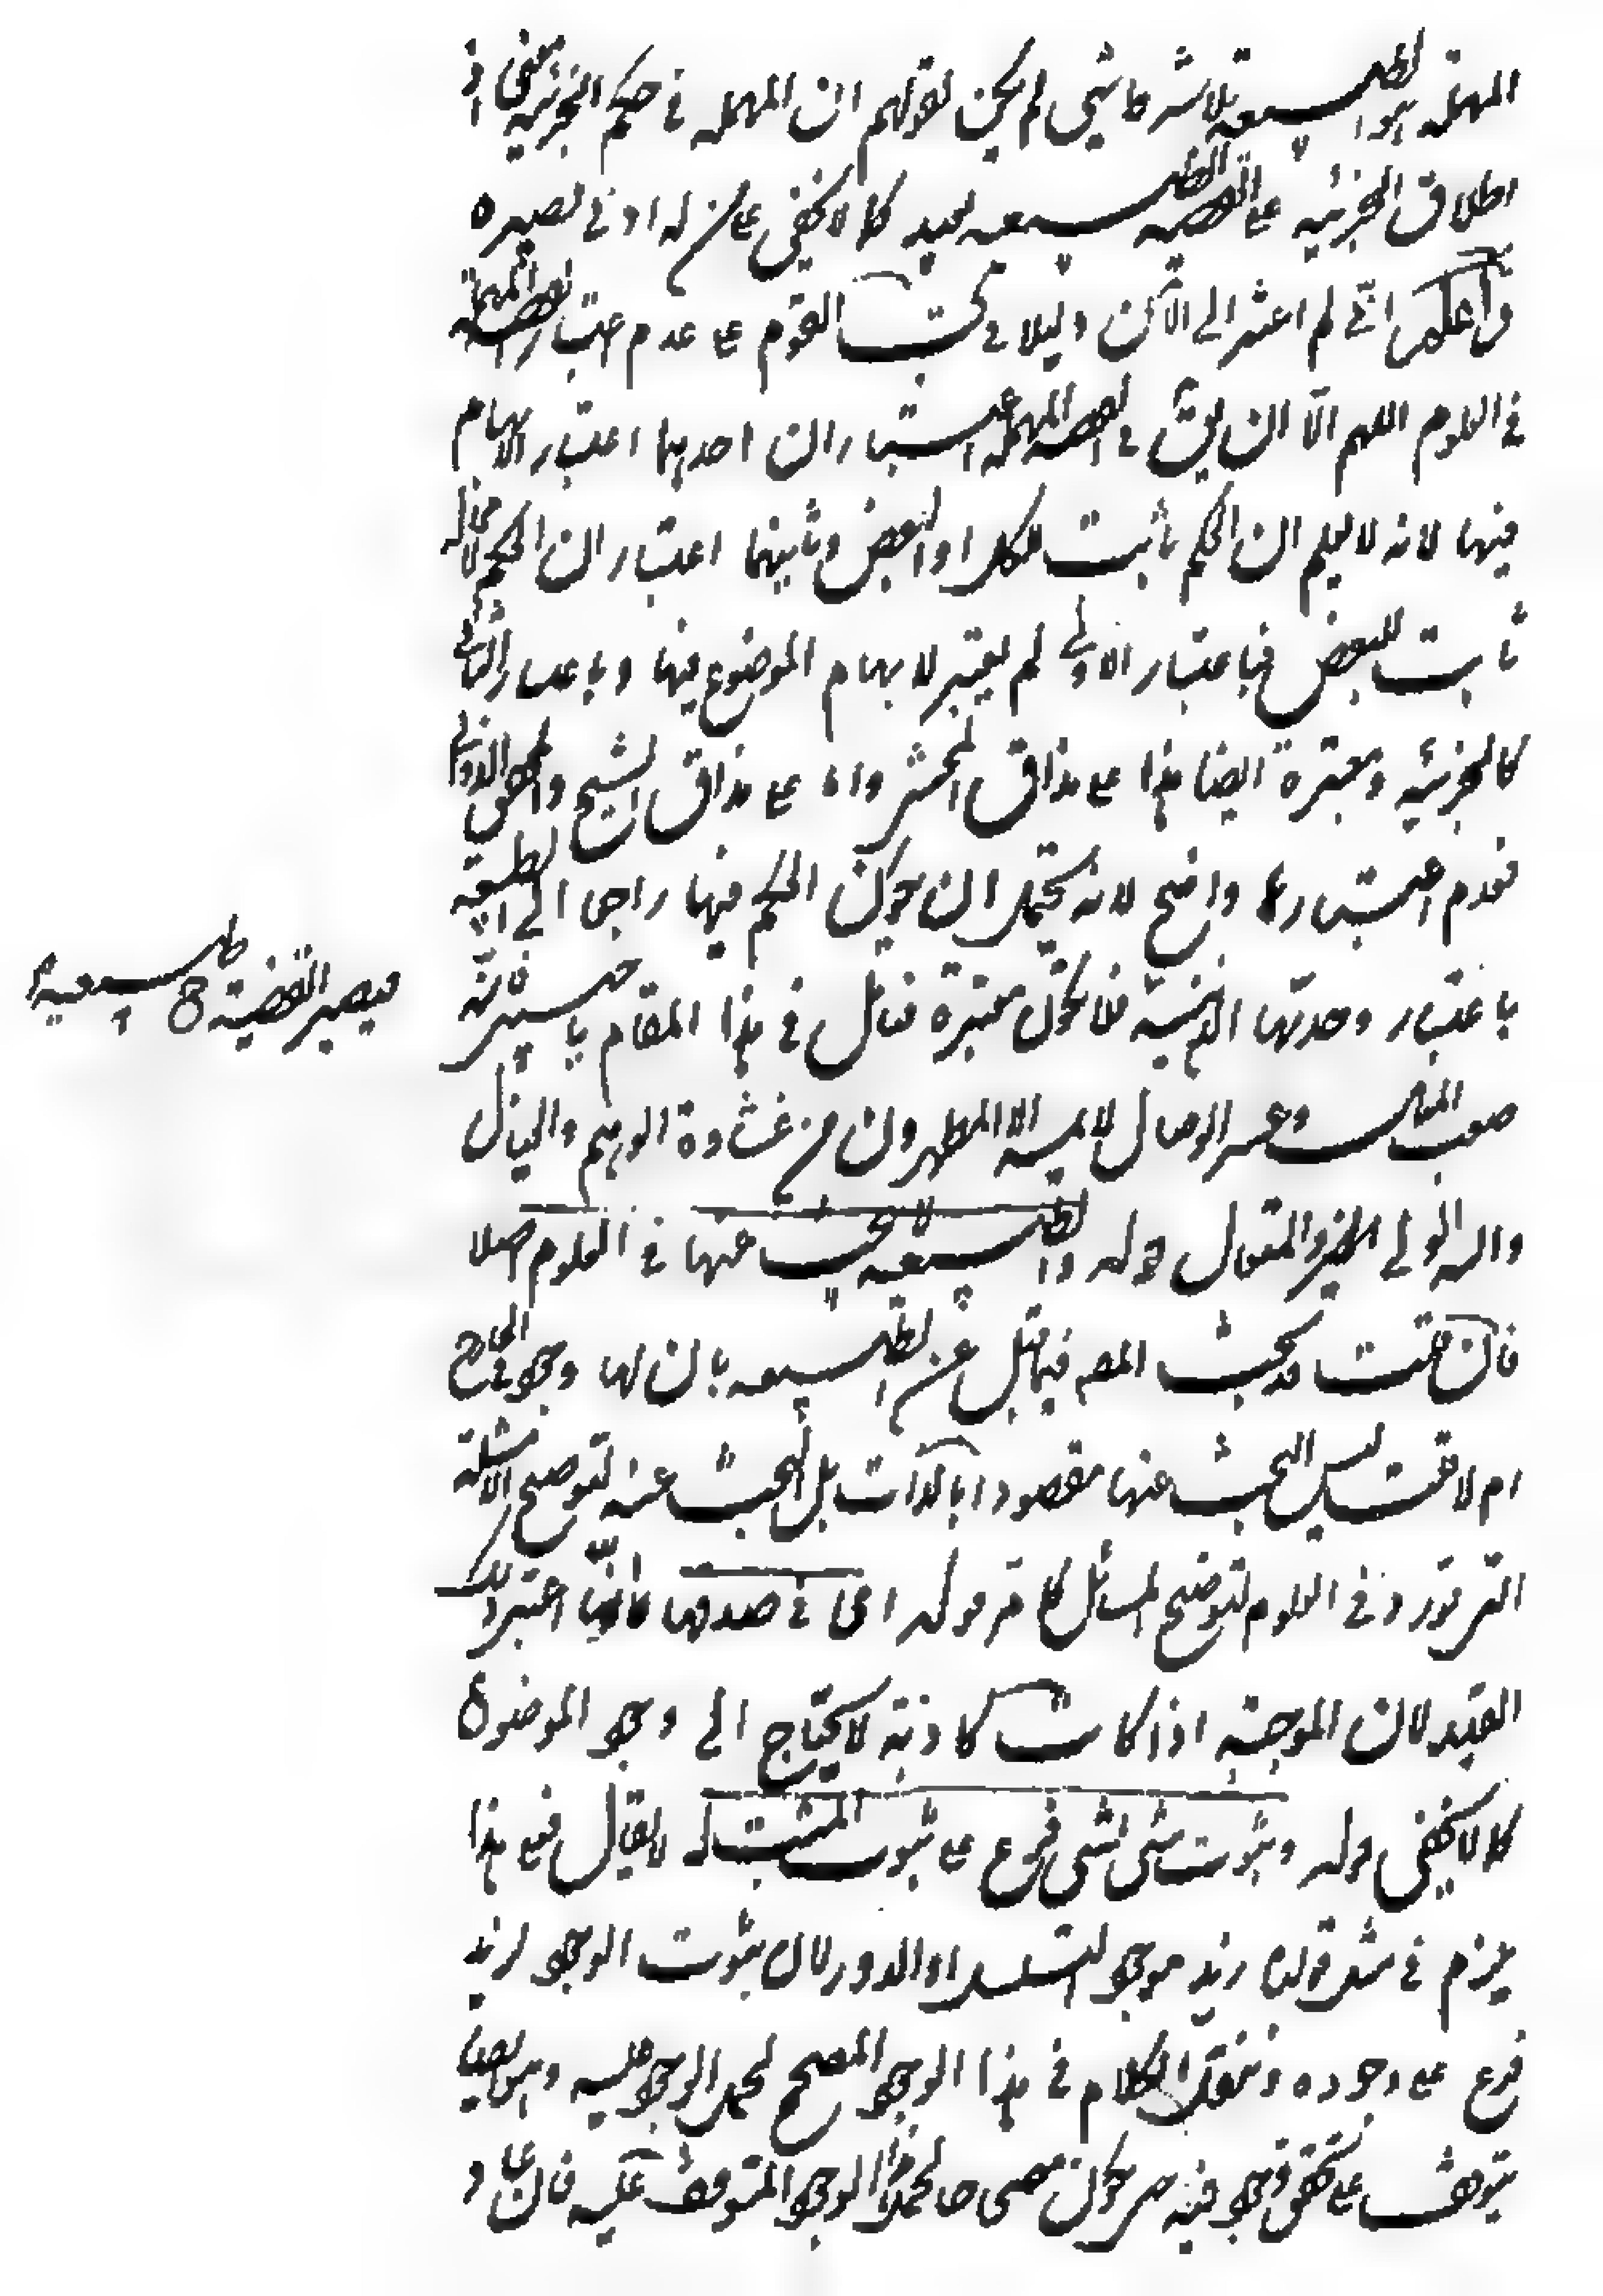 المهملة هو الطبيعة بلا شرط شيء لم يكن لقولهم ان المهملة في حكم الجزئية معنى اذ
اطلاق الجزئية على القضية الطبيعية بعيد كما لا يخفى على من له ادنى بصيرة
واعلم اني لم اعثر الى الآن دليلا في كتب القوم على عدم اعتبار القضية المهملة
في العلوم اللهم الا ان يق في القضية المهملة اعتباران احدهما اعتبار الابهام
فيها لانه لا يعلم ان الحكم ثابت للكل او البعض وثانيهما اعتبار ان الحكم لا محالة
ثابت للبعض فباعتبار الاول لم يعتبر لابهام الموضوع فيها وباعتبار الثاني
كالجزئية ومعتبرة ايضا هذا على مذاق المحشي واما على مذاق الشيخ والمحقق الدواني
فعدم اعتبارها واضح لانه يحتمل ان يكون الحكم فيها راجعا الى الطبيعة
باعتبار وحدتها الذهنية فلا تكون معتبرة فتأمل في هذا المقام يا حبيبي فانه
فيصير القضية ح طبيعية
صعب المنال وعسر الوصال لا يمسه الا المطهرون من غشاوة الوهم والخيال
والله الولي المتعال قوله والطبيعية لا يبحث عنها في العلوم اصلا
فان قلت قد يبحث المصـ فيما قبل عن الطبيعية بان لها وجود في الخارج
ام لا قلت ليس البحث عنها مقصودا بالذات بل البحث عنه لتوضيح الامثلة
التي تورد في العلوم لتوضيح المسائل كما مر قوله اي في صدقها انما اعتبر ذلك
القيد لان الموجبة اذا كانت كاذبة لا يحتاج الى وجود الموضوع
كما لا يخفى قوله وثبوت شيء لشيء فرع على ثبوت المثبت له لا يقال فعلى هذا
يلزم في مثل قولنا زيد موجود التسلسل او الدور لان ثبوت الوجود لزيد
فرع على وجوده وننقل الكلام في هذا الوجود المصحح لحمل الوجود عليه وهو ايضا
يتوقف على تحقق وجود فيه حتى يكون مصححا لحمل هذا الوجود المتوقف عليه فان عاد